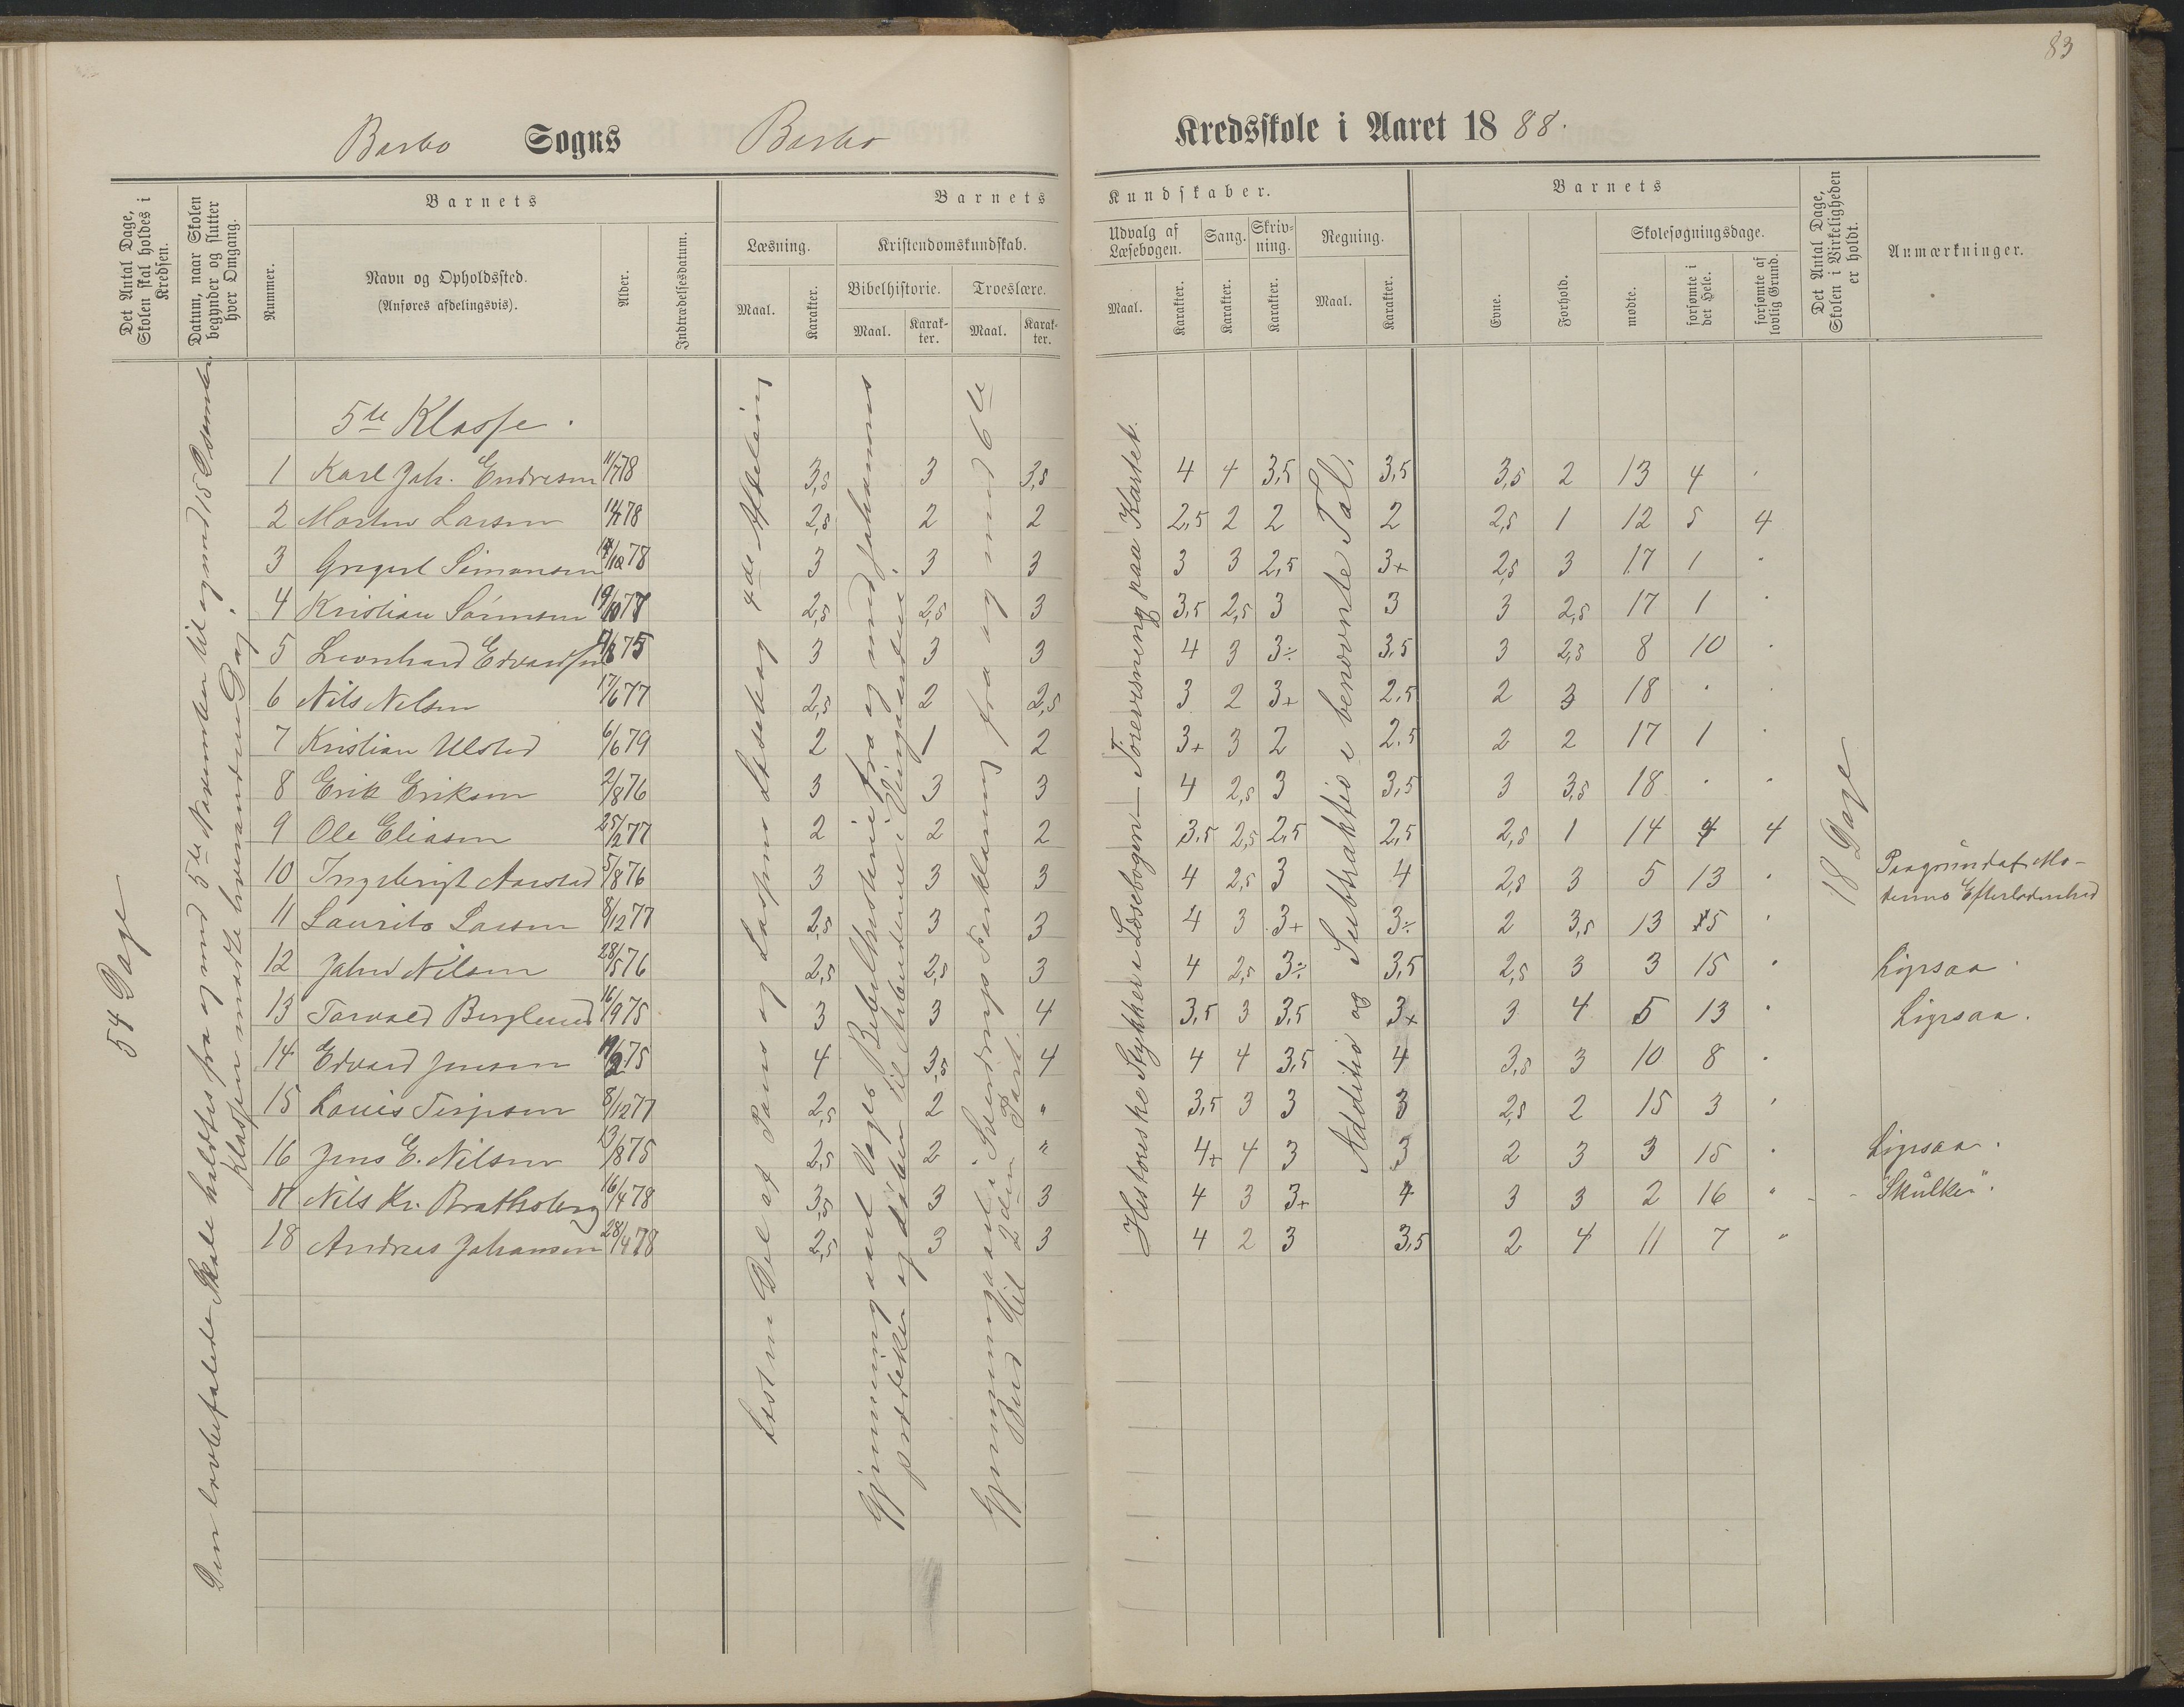 83
Barbo Sogns Barbo Kredsskole i Aaret 1888.
Det Antal Dage, Skolen skal holdes i Kredsen.
Datum, naar Skolen begynder og slutter hver Omgang.
Barnets
Nummer.
Navn og Opholdssted.
(Anføres afdelingsvis).
Alder.
Indtrædelsesdatum.
Barnets Kundskaber.
Læsning.
Maal.
Karakter.
Kristendomskundskab.
Bibelhistorie.
Maal.
Karakter.
Troeslære.
Maal.
Karakter.
Udvalg af Læsebogen.
Maal.
Karakter.
Sang.
Karakter.
Skrivning.
Karakter.
Regning.
Maal.
Karakter.
Barnets
Evne.
Forhold.
Skolesøgningsdage.
mødte.
forsømte i det Hele.
forsømte af lovlig Grund.
Det Antal Dage, Skolen i Virkeligheden er holdt.
Anmærkninger.
54 Dage
Den lovbefalede Skole holdtes fra og med 5te November til og med 15 December
Klassen mødte hverandren Dag.
5te Klasse.
1 Karl Joh. Endresen 11/7 78 3,5 3 3,5 4 4 3,5 3,5 3,5 2 13 4
2 Morten Larsen 78 2,5 2 2 2,5 2 2 2 2,5 1 12 5 4
3 Gregert Simonsen 78 3 3 3 3 3 2,5 3+ 2,5 3 17 1
4 Kristian Sørensen 19/10 77 2,5 2,5 3 3,5 2,5 3 3 3 2,5 17 1
5 Leonhard Edvardsen 75 3 3 3 4 3 3÷ 3,5 3 2,5 8 10
6 Nils Nelsen 17/6 77 2,5 2 2,5 3 2 3+ 2,5 2 3 18
7 Kristian Ulsted 6/6 79 2 1 2 3+ 3 2 2,5 2 2 17 1
8 Erik Eriksen 2/8 76 3 3 3 4 2,5 3 3,5 3 3,5 18
9 Ole Eliasen 25/2 77 2 2 2 3,5 2,5 2,5 2,5 2,5 1 14 4 4
10 Ingebrigt Aarstad 5/8 76 3 3 3 4 2,5 3 4 2,5 3 5 13 Paa grund af Moderens Efterladenhed
11 Laurits Larsen 8/12 77 2,5 3 3 4 3 3+ 3÷ 2 3,5 13 5
12 John Nilsen 28/5 76 2,5 2,5 3 4 2,5 3÷ 3,5 2,5 3 3 15 Ligesaa.
13 Torvald Berglund 16/9 75 3 3 4 3,5 3 3,5 3+ 3 4 5 13 Ligesaa.
14 Edvard Jensen 75 4 3,5 4 4 4 3,5 4 3,5 3 10 8
15 Louis Terjesen 8/12 77 2,5 2 " 3,5 3 3 3 2,5 2 15 3
16 Jens E. Nilsen 13/8 75 2,5 2 " 4+ 4 3 3 2 3 3 15 Ligesaa.
17 Nils Kr. Bratksberg 16/4 78 3,5 3 3 4 3 3+ 4 3 3 2 16 "Skulker".
18 Andreas Johansen 28/4 78 2,5 3 3 4 2 3 3,5 2 4 11 7
Læst en Del af Paus og Lassens Læsebog 4de Afdeling
Gjennemgaaet Vogts Bibelhistorie fra og med Johannes
prædiker og døber til Arbeiderne i Vingaarden.
Gjennemgaaet i Sverdrups Forklaring fra og med 6te
Bud til 2den Part.
Historiske Stykker i Læsebogen – Forevisning paa Kartet.
Additio og Subtraktio i benævnte Tal.
18 Dage